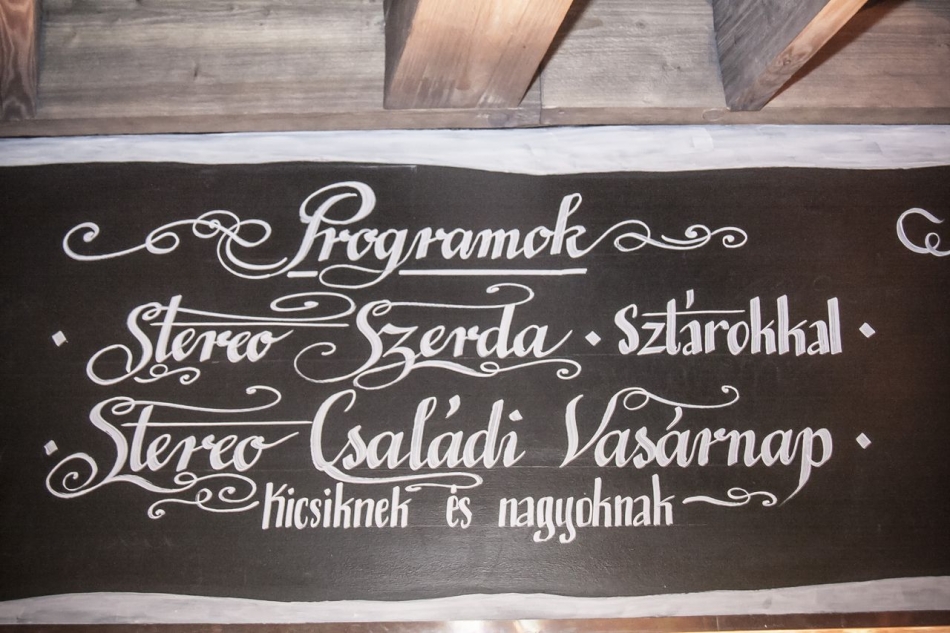 Programok
Stereo Szerda • Sztárokkal
Stereo Családi Vasárnap
Kicsiknek és nagyoknak